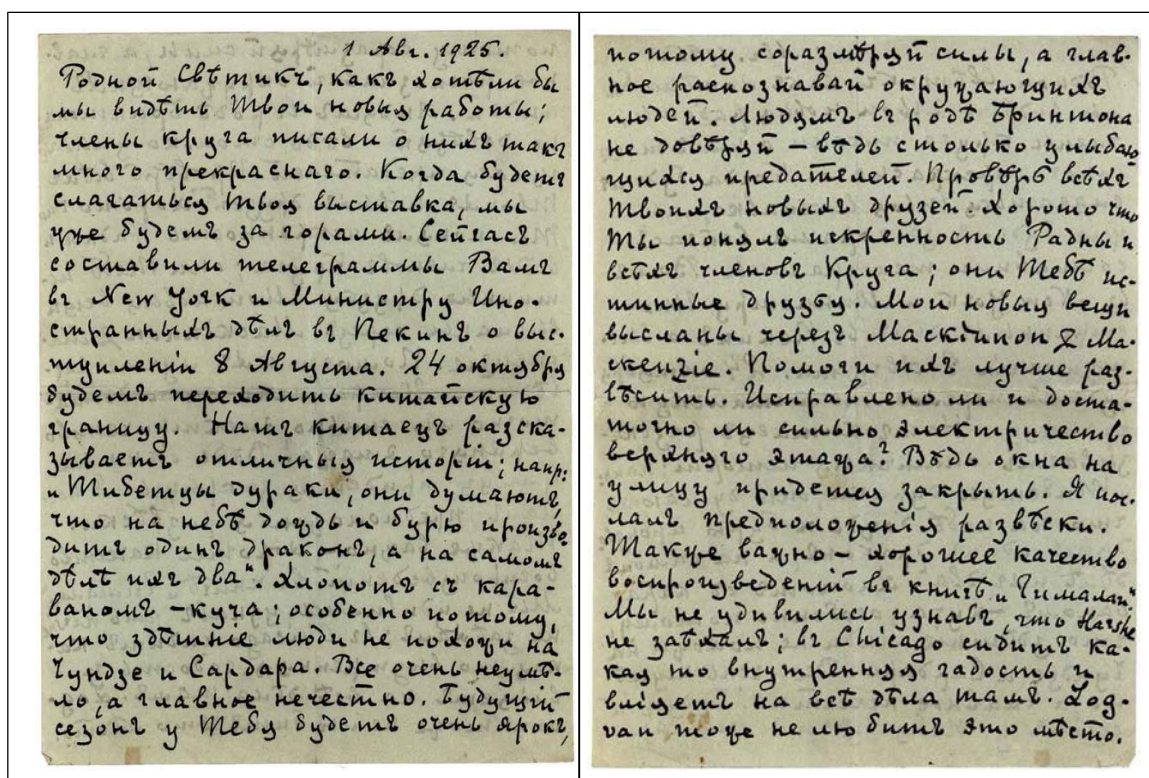 1 Авг. 1925.
Родной Свѣтикъ, какъ хотѣли бы
мы видѣть Твои новыя работы;
члены круга писали о нихъ такъ
много прекраснаго. Когда будетъ
слагаться Твоя выставка, мы
уже будемъ за горами. Сейчасъ
составили телеграммы Вамъ
въ New York и Министру Ино-
странныхъ дѣлъ въ Пекинъ о выс-
тупленіи 8 Августа. 24 октября
будемъ переходить китайскую
границу. Нашъ китаецъ разска-
зываетъ отличныя исторіи; напр:
„Тибетцы дураки, они думаютъ,
что на небѣ дождь и бурю произво-
дитъ одинъ драконъ, а на самомъ
дѣлѣ ихъ два“. Хлопотъ съ кара-
ваномъ – куча; особенно потому,
что здѣшніе люди не похожи на
Чундзе и Сардара. Все очень неумѣ-
ло, а главное нечестно. Будущій
сезонъ у Тебя будетъ очень ярокъ,
потому соразмѣряй силы, а глав-
ное распознавай окружающихъ
людей. Людямъ въ родѣ Бринтона
не довѣряй – вѣдь столько улыбаю-
щихся предателей. Провѣрь всѣхъ
Твоихъ новыхъ друзей. Хорошо что
Ты понялъ искренность Радны и
всѣхъ членовъ Круга; они Тебѣ ис-
тинные друзья. Мои новыя вещи
высланы черезъ Mackinnon & Ma-
ckenzie. Помоги ихъ лучше раз-
вѣсить. Исправлено ли и доста-
точно ли сильно электричество
верхняго этажа? Вѣдь окна на
улицу придется закрыть. Я пос-
лалъ предположенія развѣски.
Также важно – хорошее качество
воспроизведеній въ книгѣ „Гималаи“.
Мы не удивились узнавъ, что Harshe
не заѣхалъ; въ Chicago сидитъ ка-
кая то внутренняя гадость и
вліяетъ на всѣ дѣла тамъ. Log-
van тоже не любитъ это мѣсто.